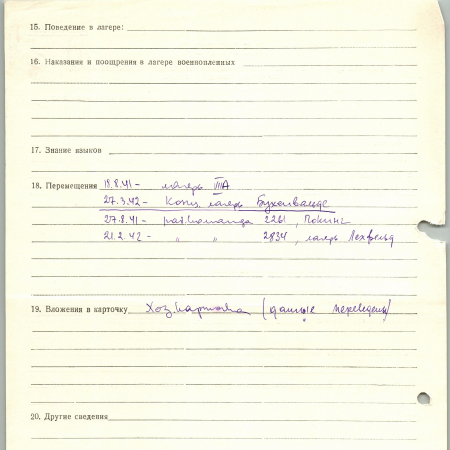 15. Поведение в лагере:
16. Наказания и поощрения в лагере военнопленных
17. Знание языков
18. Перемещения 18.8.41 – лагерь VIIA
27.3.42 – Конц. лагерь Бухенвальде
27.8.41 – раб.команда 2261, Покинг
21.2.42 – " " 2834, лагерь Лехфельд
19. Вложения в карточку Хоз. карточка (данные переведены)
20. Другие сведения